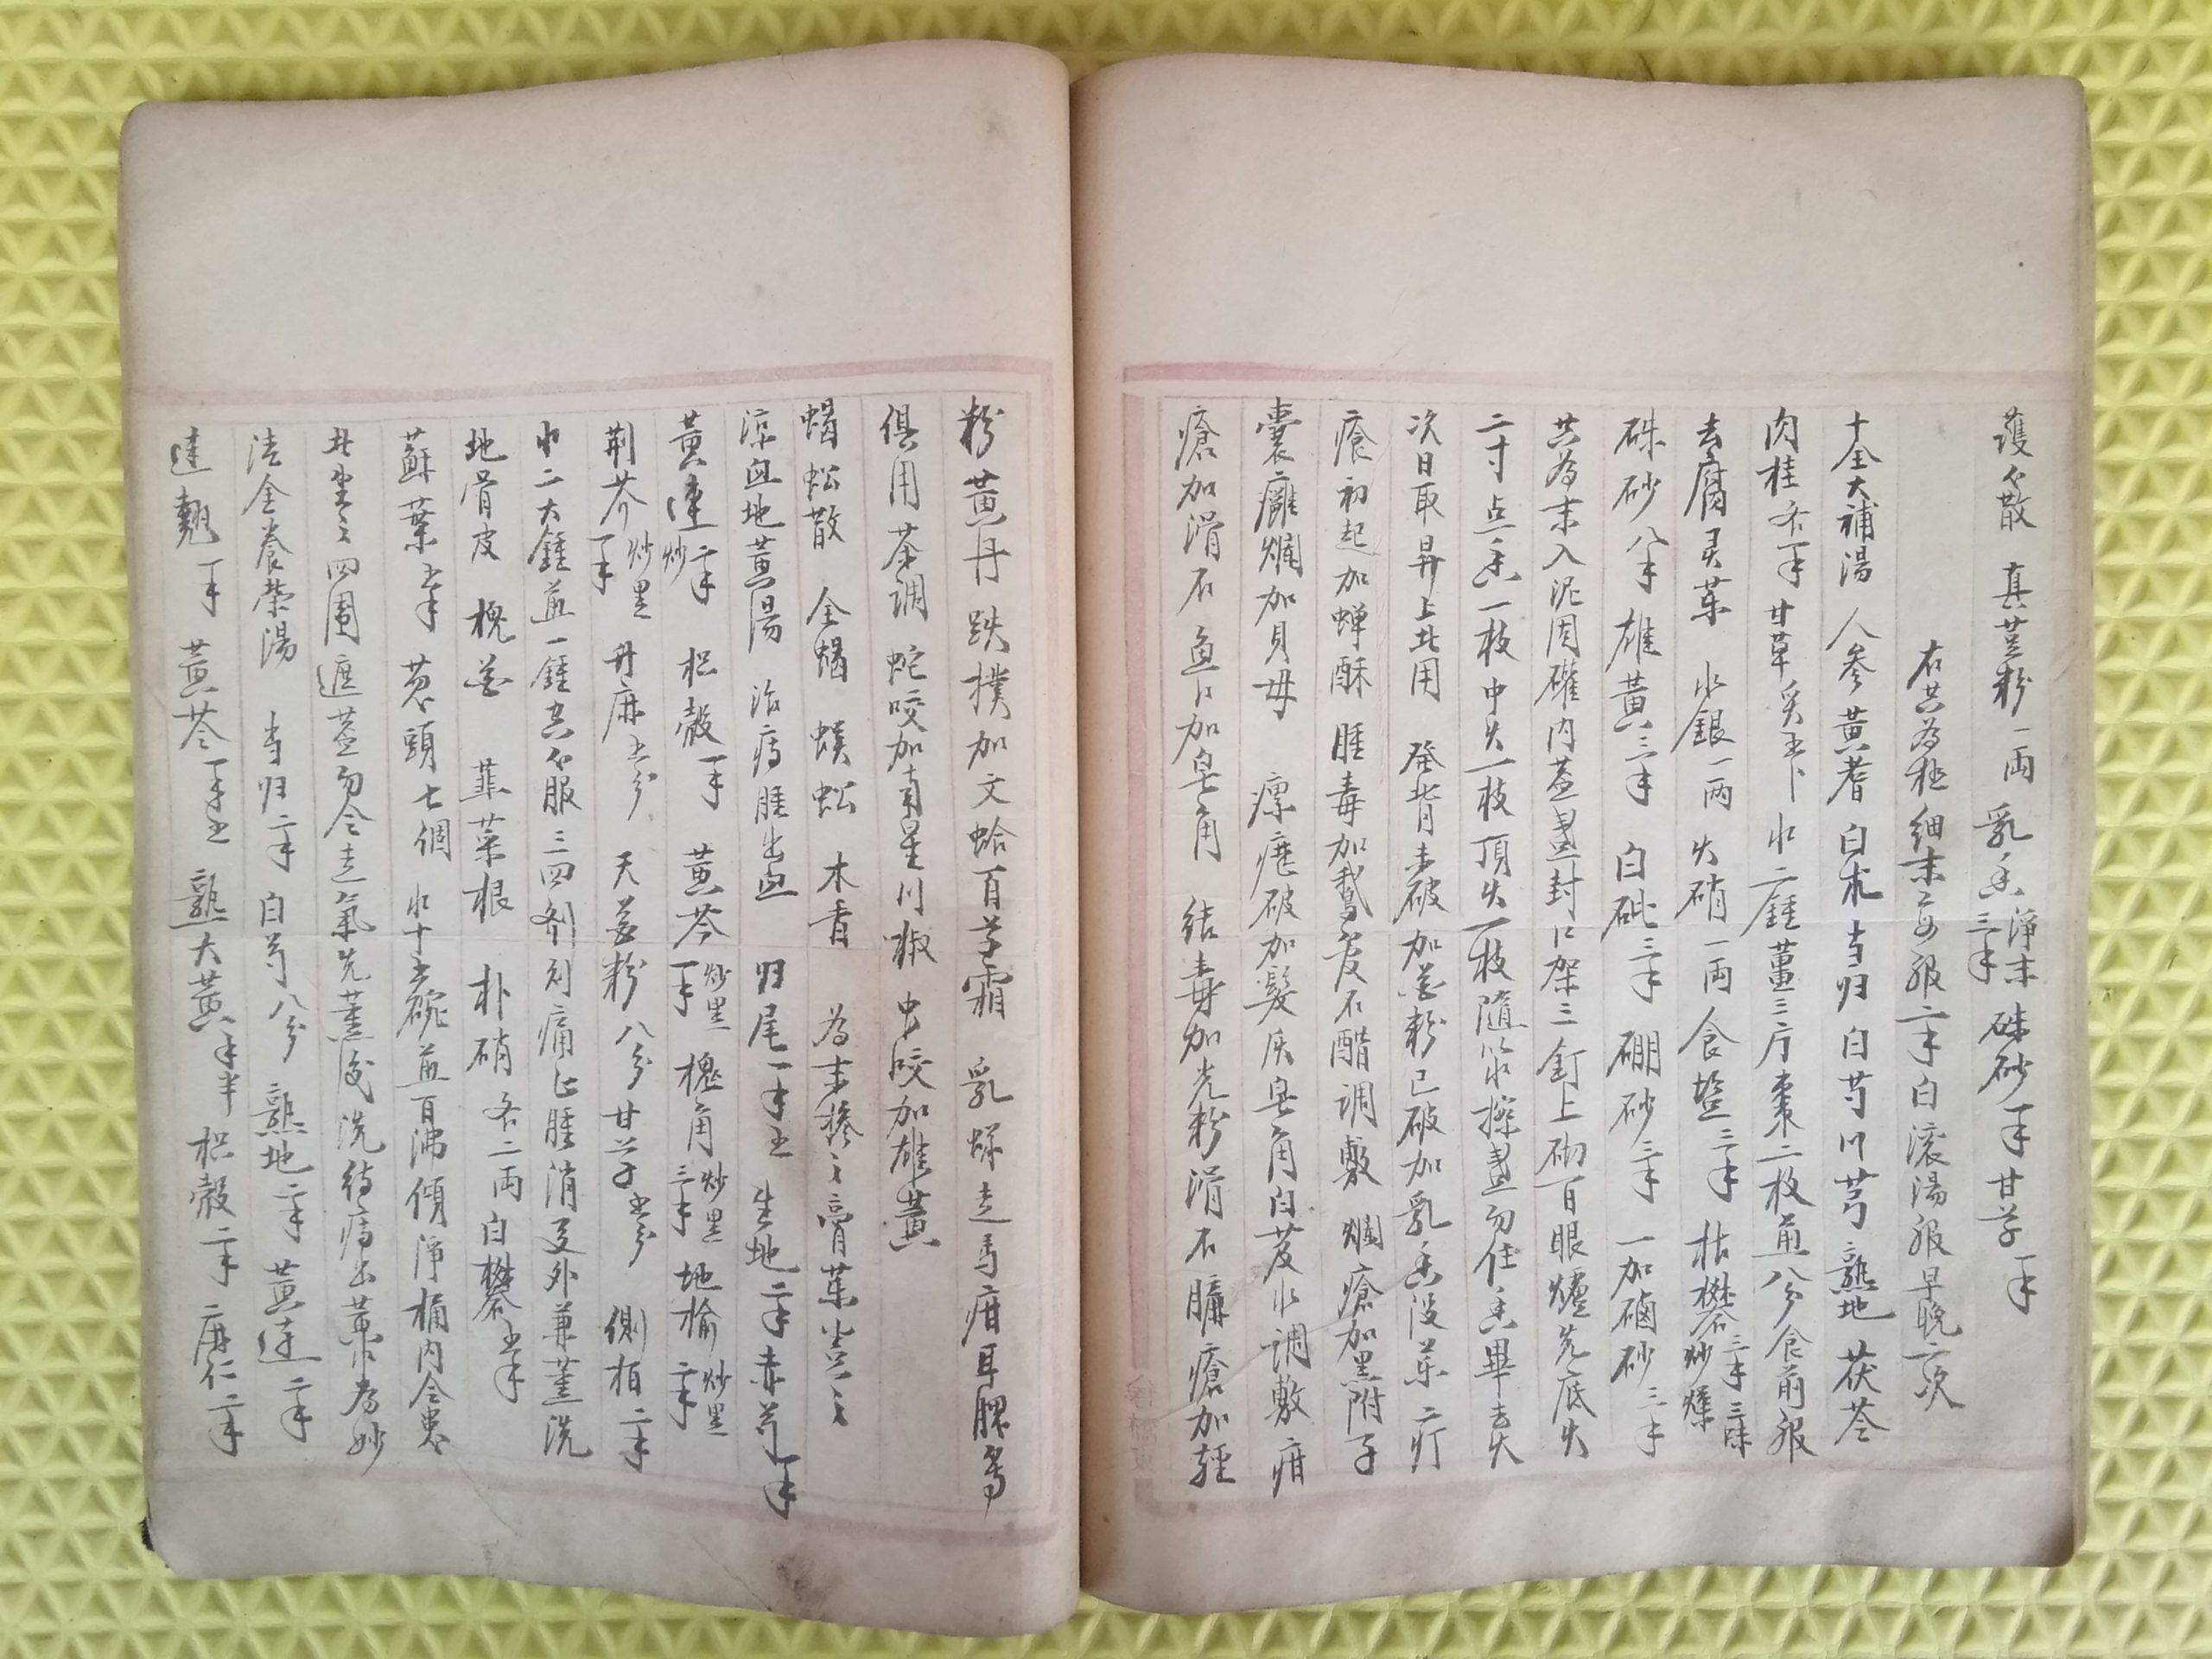 護心散 真荳粉一両 乳香淨末三手 硃砂一手 甘草一手
右共為極細末每服二手白滚湯服早晚二次
十全大補湯 人參 黃耆 白朮 当归 白芍 川芎 熟地 茯苓
肉桂各一手 甘草炙五卜 水二鍾薑三片棗二枚煎八分食前服
去腐灵药 水銀一両 火硝一両 食塩三手 枯礬三手三味炒燥
硃砂八手 雄黃三手 白砒三手 硼砂三手 一加磠砂三手
共為末入泥固礶内盖盪封口架三釘上砌百眼爐先底火
二寸点香一枝中火一枝頂火一枝隨以水擦盪勿住香畢去火
次日取昇上此用 發背未破加花粉已破加乳香没药 疔
瘡初起加蟬酥 腫毒加鵝 石醋調敷 爛瘡加黑附子
囊癰爛加貝毋 瘰癧破加髮灰皂角白芨水調敷 疳
瘡加滑石 魚口加皂角 結毒加光粉滑石 臁瘡加輕
粉黃丹 跌撲加文蛤百草霜 乳蛾走馬疳耳腮等
俱用茶調 蛇咬加南星川椒 虫咬加雄黃
蝎蚣散 全蝎 蜈蚣 木香 為末摻之膏药盖之
涼血地黃湯 治痔腫出血 归尾一手五 生地二手 赤芍一手
黃連炒二手 枳殼一手 黃芩炒黑一手 槐角炒黑三手 地榆炒黑二手
荆芥炒黑一手 升麻五分 天花粉八分 甘草五分 側柏二手
水二大鍾煎一鍾空心服三四剂刻痛止腫消又外兼薰洗
地骨皮 槐花 韮菜根 朴硝各二両 白礬五手
蘇葉五手 葱頭七個 水十五碗煎百沸傾淨桶内令患
此坐之四圍遮盖勿令走氣先薰後洗待痔出黃水為妙
清金養榮湯 当归二手 白芍八分 熟地二手 黃連二手
連翹一手 黃芩一手五 熟大黃一手半 枳殼二手 麻仁二手